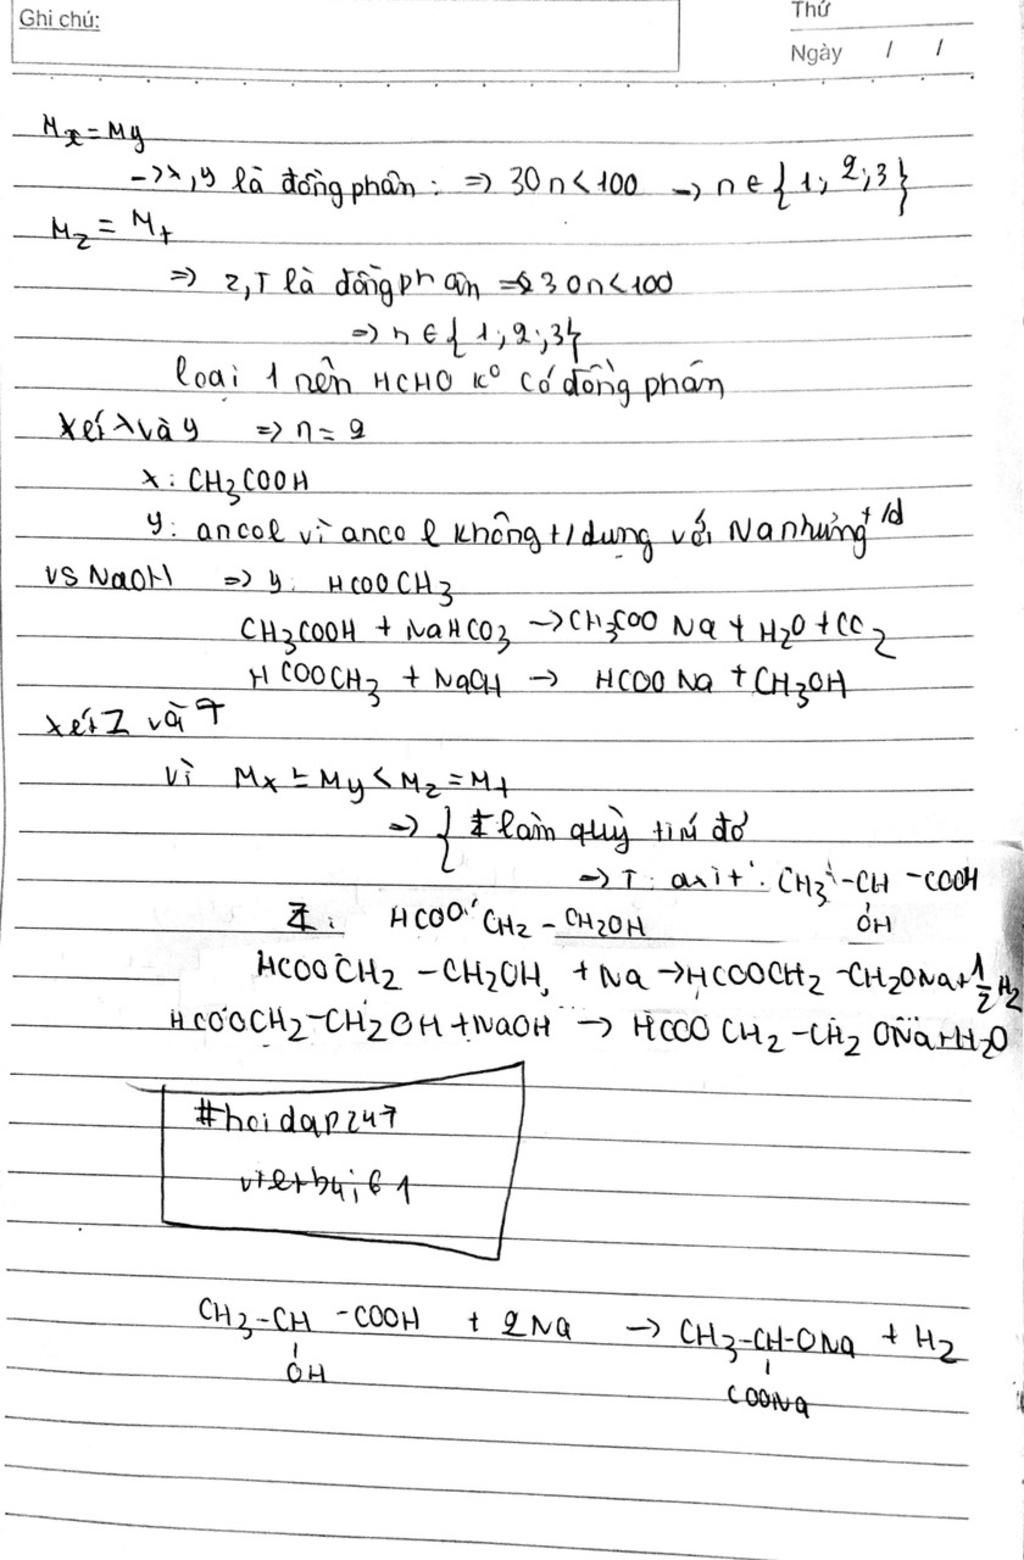 Ghi chú:
Thứ
Ngày / /
Mx = My
-> x, y là đồng phân : => 30n < 100 -> n ∈ {1; 2; 3}
Mz = M+
=> z, T là đồng phân => 30n < 100
=> n ∈ {1; 2; 3}
loại 1 nên HCHO k° có đồng phân
xét x và y => n = 2
x : CH3COOH
y : ancol vì ancol không t/dụng với Na nhưng t/d
vs NaOH => y : HCOOCH3
CH3COOH + NaHCO3 -> CH3COO Na + H2O + CO2
HCOOCH3 + NaOH -> HCOO Na + CH3OH
xét Z và T
vì Mx = My < Mz = M+
=> { T làm quỳ tím đỏ
=> T : axit : CH3 - CH - COOH
OH
Z : HCOO CH2 - CH2OH
HCOOCH2 - CH2OH + Na -> HCOOCH2 - CH2ONa + 1/2 H2
HCOOCH2 - CH2OH + NaOH -> HCOO CH2 - CH2 ONa + H2O
#hoidap247
vietbui61
CH3 - CH - COOH + 2Na -> CH3 - CH - ONa + H2
OH
COONa